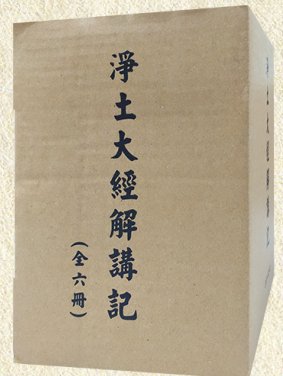 淨土大經解講記
(全六冊)
淨土大經解講記